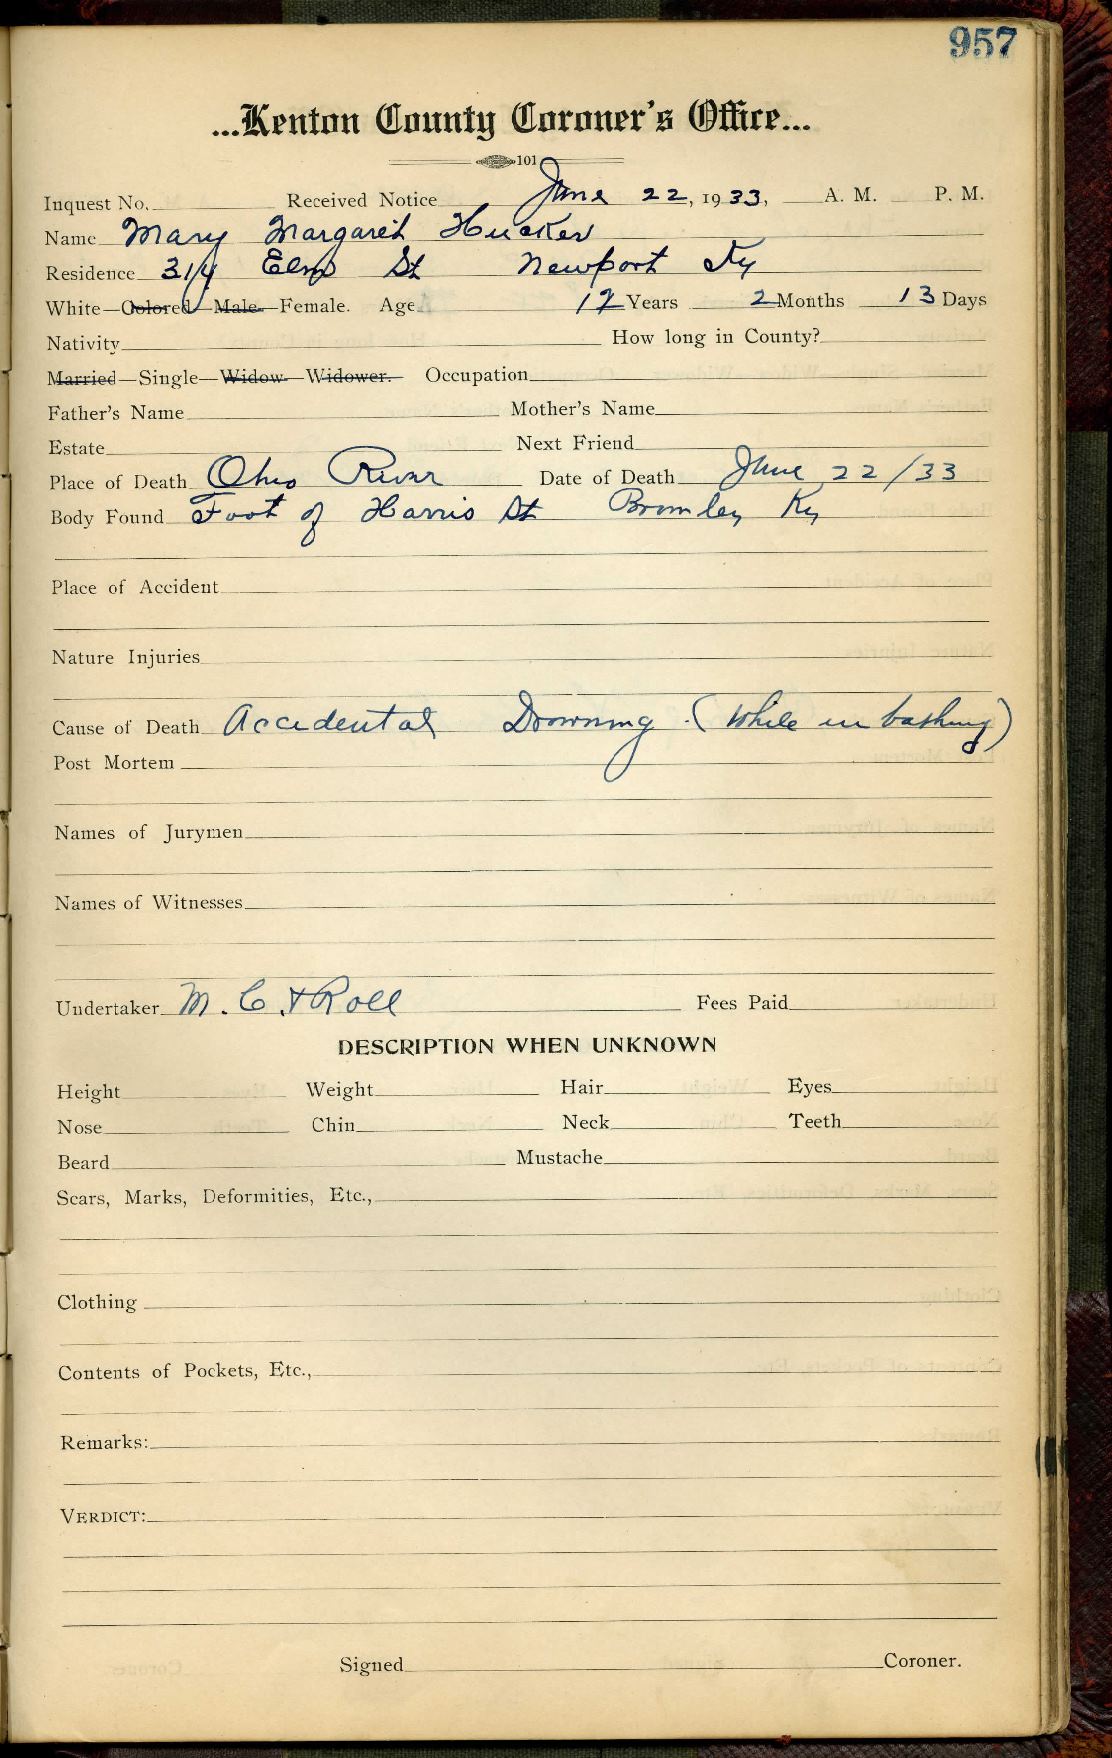 957
...Kenton County Coroner's Office...
101
Inquest No. Received Notice June 22, 1933, A. M. P. M.
Name Mary Margaret Hucker
Residence 314 Elm St Newport Ky
White—Colored—Male—Female. Age Years 2 Months 13 Days
Nativity How long in County?
Married—Single—Widow—Widower. Occupation
Father's Name Mother's Name
Estate Next Friend
Place of Death Ohio River Date of Death June 22/33
Body Found Foot of Harris St Bromley Ky
Place of Accident
Nature Injuries
Cause of Death Accidental Drowning (While in bathing)
Post Mortem
Names of Jurymen
Names of Witnesses
Undertaker M. C. & Roll Fees Paid
DESCRIPTION WHEN UNKNOWN
Height Weight Hair Eyes
Nose Chin Neck Teeth
Beard Mustache
Scars, Marks, Deformities, Etc.,
Clothing
Contents of Pockets, Etc.,
Remarks:
VERDICT:
Signed Coroner.